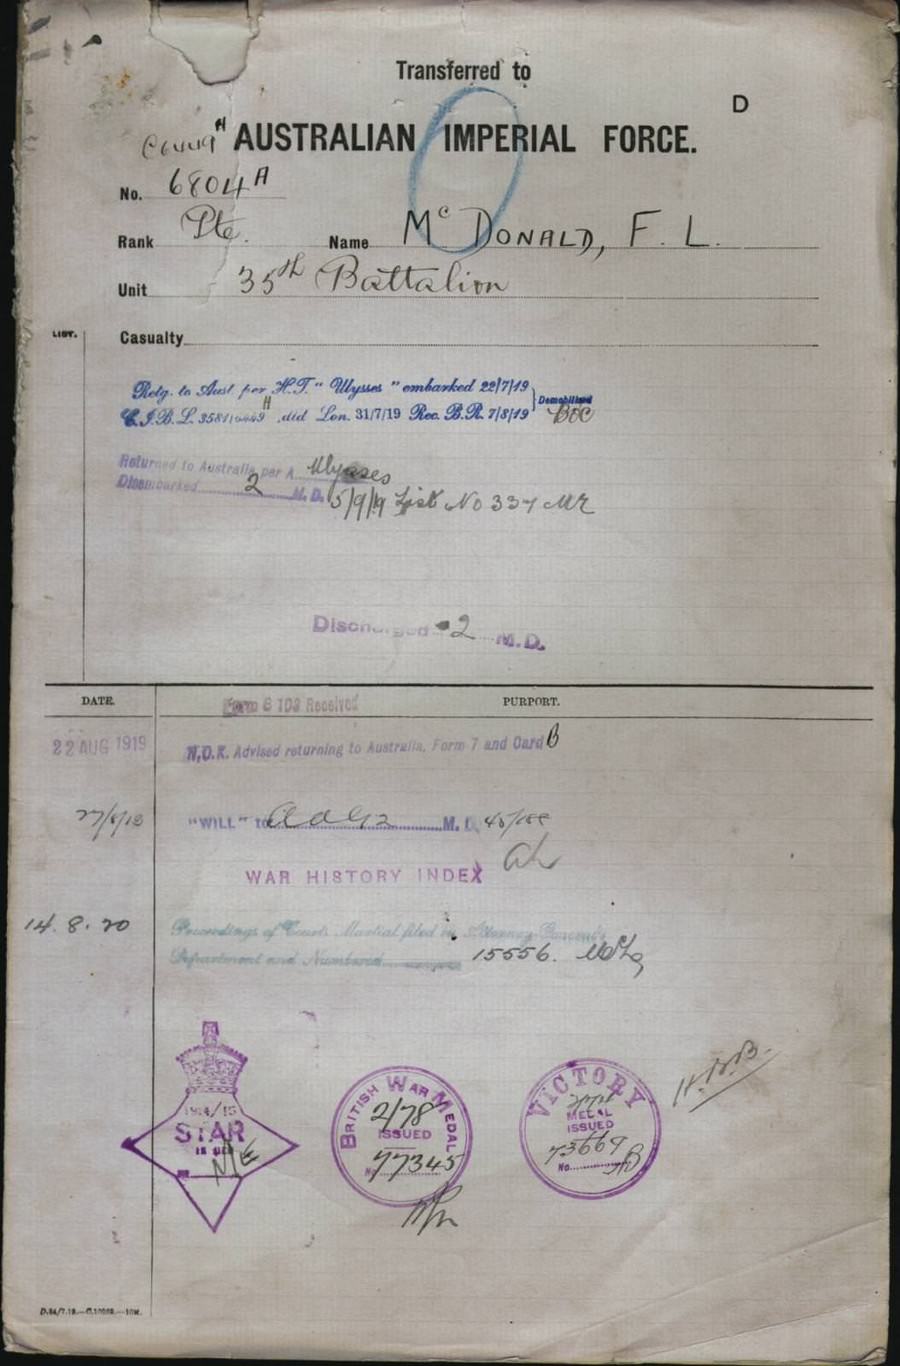 Transferred to
D
AUSTRALIAN IMPERIAL FORCE.
No. 6804A
Rank Pte. Name McDONALD, F. L.
Unit 35th Battalion
LIST.
Casualty
Retg. to Aust. per H.T. "Ulysses" embarked 22/7/19
C.I.B.L. dtd Lon. 31/7/19 Rec. B.R. 7/8/19 Demobilised
Returned to Australia per A Ulysses
Disembarked 2 M.D. 5/9/19 List No 337
Discharged 2 M.D.
DATE. PURPORT.
Form B 103 Received
22 AUG 1919 N.O.K. Advised returning to Australia, Form 7 and Card B
"WILL" to M.D.
WAR HISTORY INDEX
14.8.20 Proceedings of Courts Martial filed in Attorney General's
Department and Numbered 15556.
1914/15
STAR
BRITISH WAR MEDAL
2/78
ISSUED
No. 77345
VICTORY
MEDAL
ISSUED
73669
No.